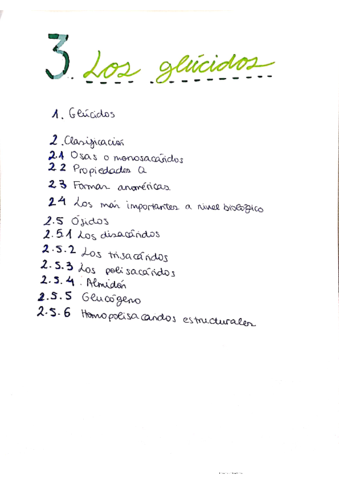 3. Los glúcidos
1. Glúcidos
2. Clasificación
2.1 Osas o monosacáridos
2.2 Propiedades Q
2.3 Formas anoméricas
2.4 Los más importantes a nivel biológico
2.5 Ósidos
2.5.1 Los disacáridos
2.5.2 Los trisacáridos
2.5.3 Los polisacáridos
2.5.4. Almidón
2.5.5 Glucógeno
2.5.6 Homopolisacáridos estructurales